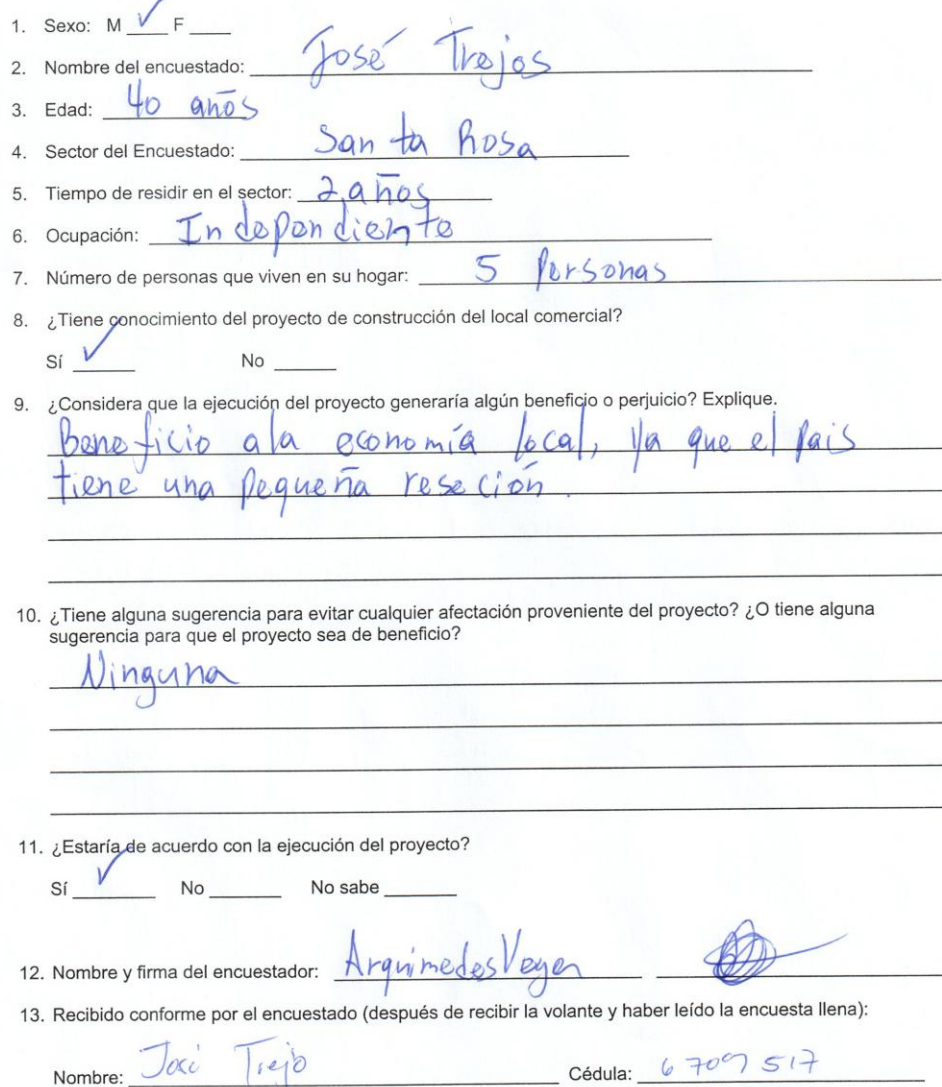 1. Sexo: M ✓ F ____
2. Nombre del encuestado: José Trejos
3. Edad: 40 años
4. Sector del Encuestado: Santa Rosa
5. Tiempo de residir en el sector: 2 años
6. Ocupación: Independiente
7. Número de personas que viven en su hogar: 5 Personas
8. ¿Tiene conocimiento del proyecto de construcción del local comercial?
Sí ✓ No ____
9. ¿Considera que la ejecución del proyecto generaría algún beneficio o perjuicio? Explique.
Beneficio a la economía local, ya que el pais
tiene una pequeña reseción.
10. ¿Tiene alguna sugerencia para evitar cualquier afectación proveniente del proyecto? ¿O tiene alguna
sugerencia para que el proyecto sea de beneficio?
Ninguna
11. ¿Estaría de acuerdo con la ejecución del proyecto?
Sí ✓ No ____ No sabe ____
12. Nombre y firma del encuestador: Arquimedes
13. Recibido conforme por el encuestado (después de recibir la volante y haber leído la encuesta llena):
Nombre: José Trejo Cédula: 6 709 517